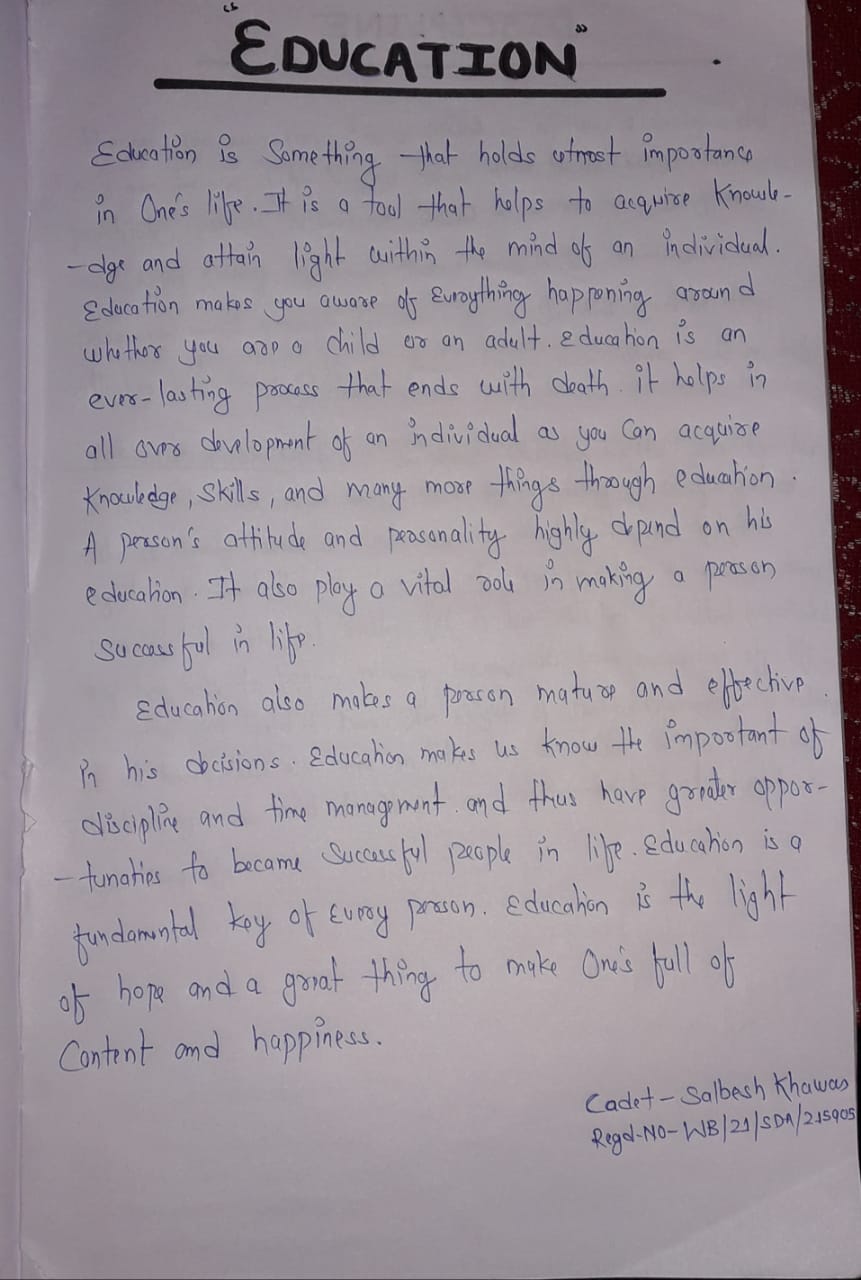 "EDUCATION"
Education is Something that holds utmost importance
in One's life. It is a tool that helps to acquire Knowle-
-dge and attain light within the mind of an individual.
Education makes you aware of Everything happening around
whether you are a child or an adult. Education is an
ever-lasting process that ends with death. it helps in
all over development of an individual as you Can acquire
Knowledge, Skills, and many more things through education.
A person's attitude and personality highly depend on his
education. It also play a vital role in making a person
Successful in life.
Education also makes a person mature and effective
in his decisions. Education makes us know the important of
discipline and time management. and thus have greater oppor-
-tunaties to became Successful people in life. Education is a
fundamental key of Every person. Education is the light
of hope and a great thing to make One's full of
Content and happiness.
Cadet- Salbesh Khawas
Regd-NO- WB/21/SDA/215905